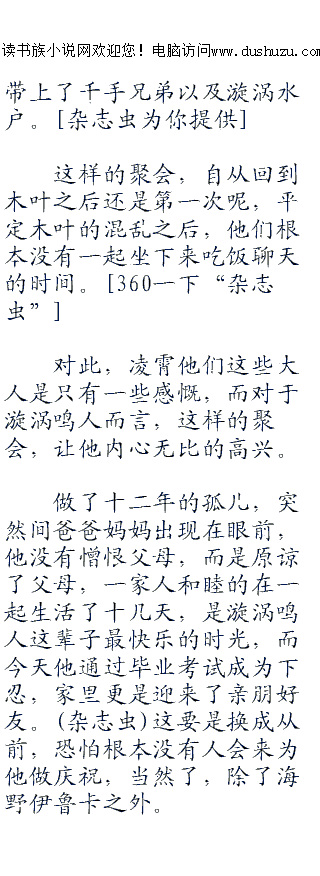 读书族小说网欢迎您！电脑访问www.dushuzu.com
带上了千手兄弟以及漩涡水
户。[杂志虫为你提供]
这样的聚会，自从回到
木叶之后还是第一次呢，平
定木叶的混乱之后，他们根
本没有一起坐下来吃饭聊天
的时间。[360一下“杂志
虫”]
对此，凌霄他们这些大
人是只有一些感慨，而对于
漩涡鸣人而言，这样的聚
会，让他内心无比的高兴。
做了十二年的孤儿，突
然间爸爸妈妈出现在眼前，
他没有憎恨父母，而是原谅
了父母，一家人和睦的在一
起生活了十几天，是漩涡鸣
人这辈子最快乐的时光，而
今天他通过毕业考试成为下
忍，家里更是迎来了亲朋好
友。(杂志虫)这要是换成从
前，恐怕根本没有人会来为
他做庆祝，当然了，除了海
野伊鲁卡之外。